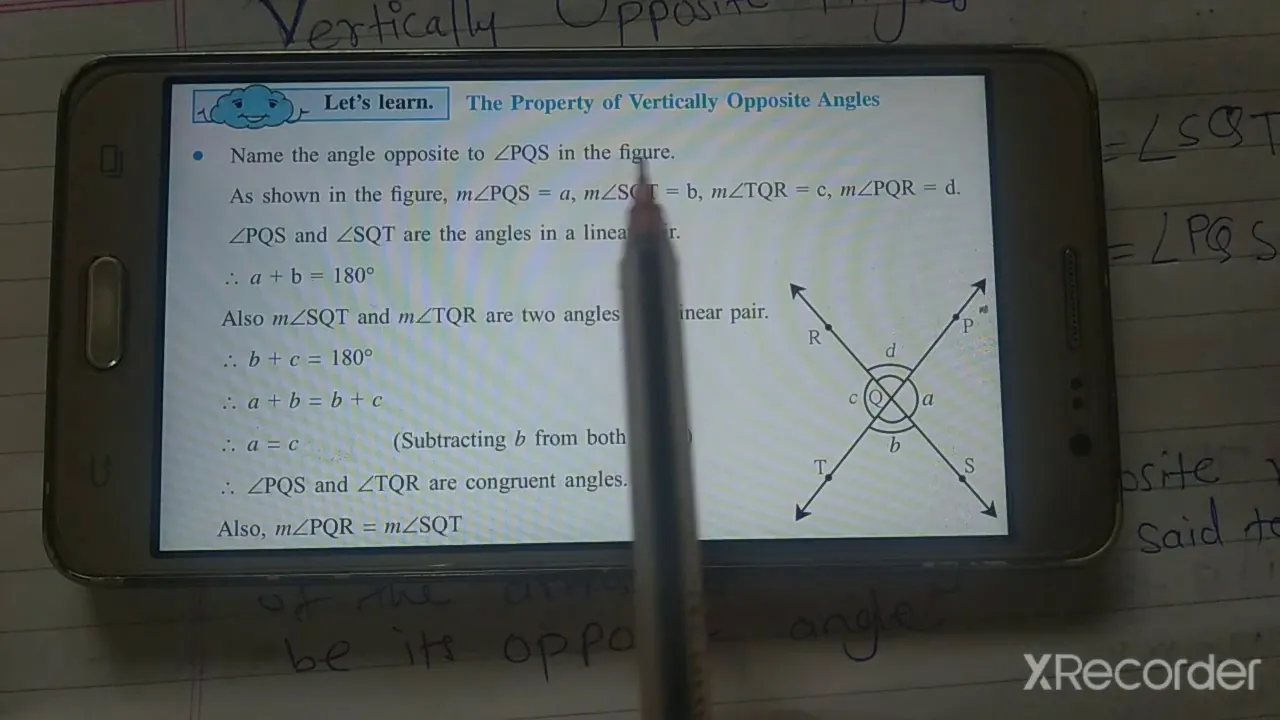 Vertically Opposite
Let's learn. The Property of Vertically Opposite Angles
• Name the angle opposite to ∠PQS in the figure.
As shown in the figure, m∠PQS = a, m∠SQT = b, m∠TQR = c, m∠PQR = d.
∠PQS and ∠SQT are the angles in a linear pair.
∴ a + b = 180°
Also m∠SQT and m∠TQR are two angles linear pair.
∴ b + c = 180°
∴ a + b = b + c
∴ a = c (Subtracting b from both
∴ ∠PQS and ∠TQR are congruent angles.
Also, m∠PQR = m∠SQT
R
P
d
c
Q
a
b
T
S
= ∠SQT
= ∠PQS
said to
of the
be its angle
XRecorder